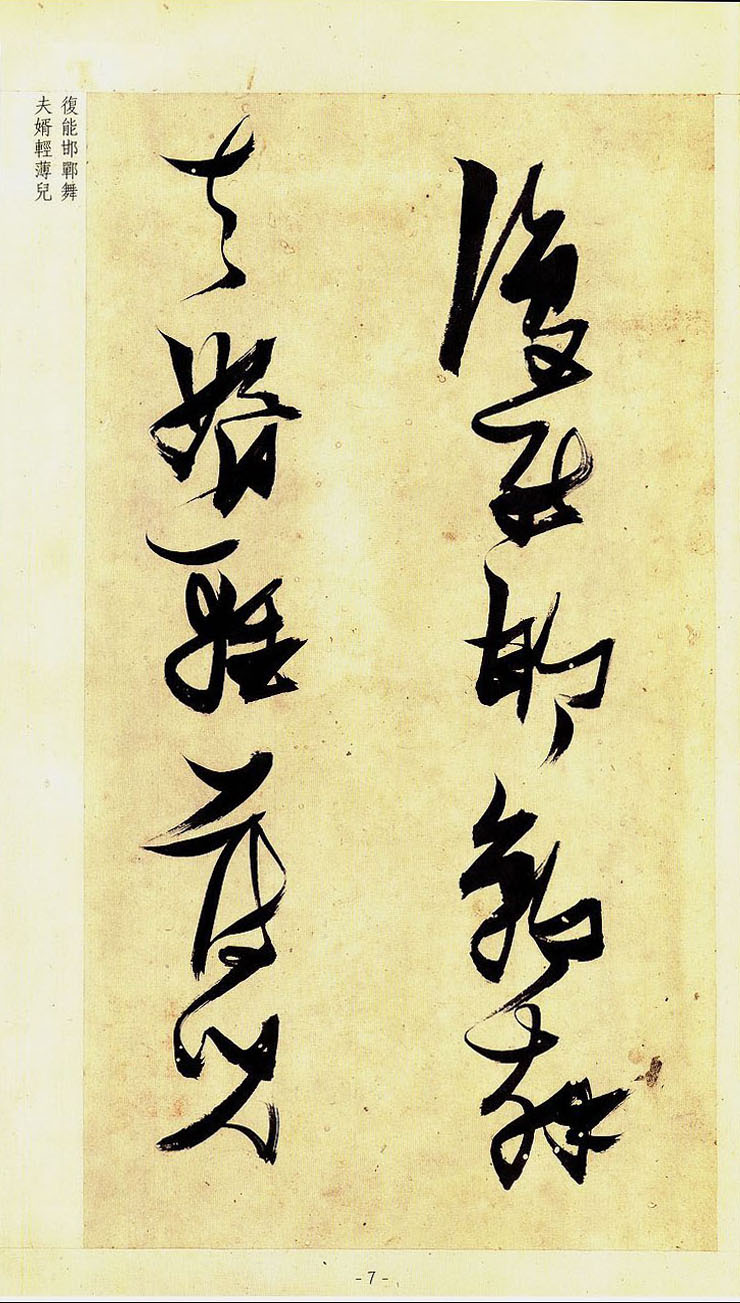 復能邯鄲舞
夫婿輕薄兒
復能邯鄲舞
夫婿輕薄兒
- 7 -